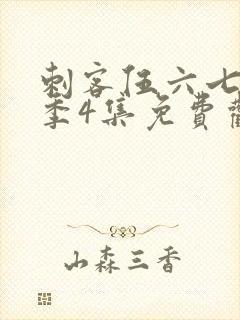 刺客伍六七
季4集免費
山森三香